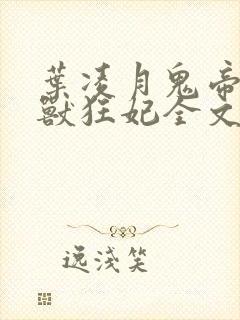 葉凌月鬼帝
獸狂妃全文
逸淺笑